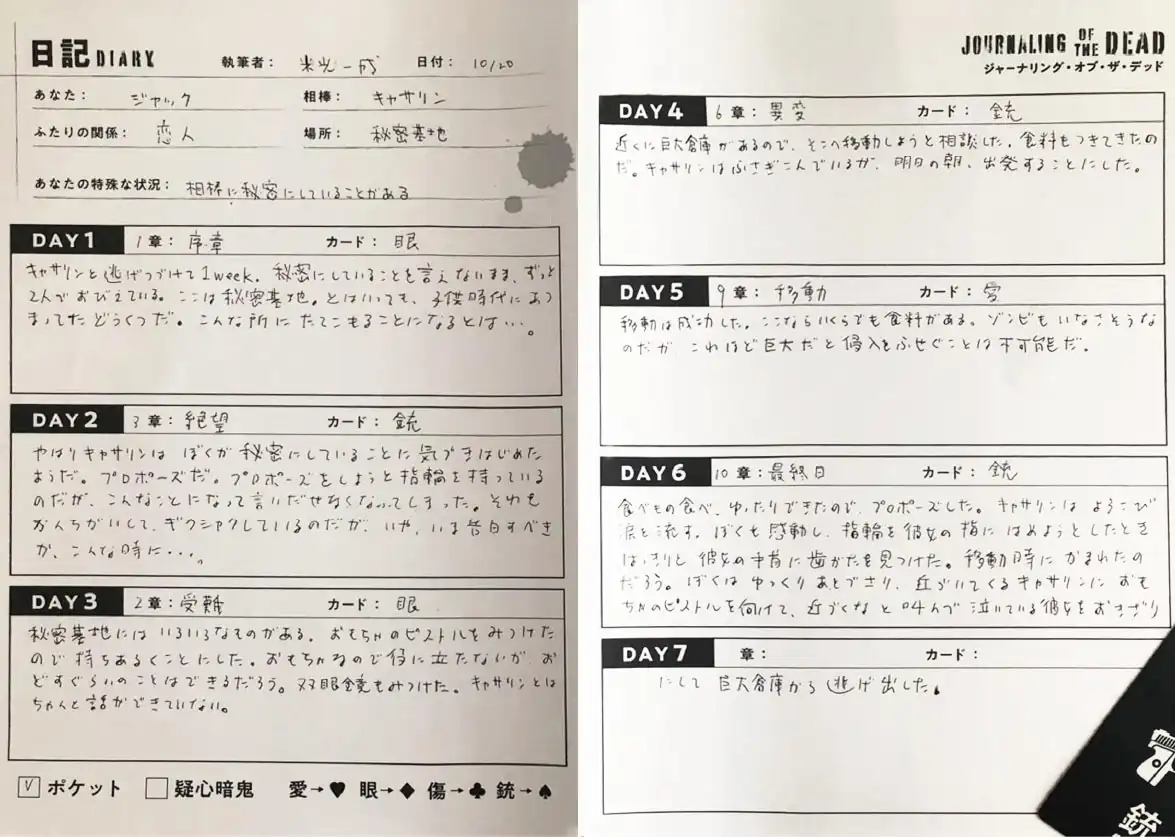 日記 DIARY
執筆者： 米光一成 日付： 10/20
あなた： ジャック 相棒： キャサリン
ふたりの関係： 恋人 場所： 秘密基地
あなたの特殊な状況： 相棒に秘密にしていることがある
DAY1 1章： 序章 カード： 眼
キャサリンと逃げつづけて1week。秘密にしていることを言えないまま、ずっと
2人でおびえている。ここは秘密基地。とはいっても、子供時代にあつ
まってたどうくつだ。こんな所にたてこもることになるとは…。
DAY2 3章： 絶望 カード： 銃
やはりキャサリンは ぼくが秘密にしていることに気づきはじめた
ようだ。プロポーズだ。プロポーズをしようと指輪を持っている
のだが、こんなことになって言いだせなくなってしまった。それも
かんちがいして、ギクシャクしているのだが、いや、いま告白すべき
か、こんな時に...。
DAY3 2章： 受難 カード： 眼
秘密基地にはいろいろなものがある。おもちゃのピストルをみつけた
ので持ちあるくことにした。おもちゃなので役に立たないが、お
どすぐらいのことはできるだろう。双眼鏡もみつけた。キャサリンとは
ちゃんと話ができていない。
ポケット 疑心暗鬼 愛→♥ 眼→♦ 傷→♣ 銃→♠
JOURNALING OF THE DEAD
ジャーナリング・オブ・ザ・デッド
DAY4 6章： 異変 カード： 銃
近くに巨大倉庫があるので、そこへ移動しようと相談した。食料もつきてきたの
だ。キャサリンはふさぎこんでいるが、明日の朝、出発することにした。
DAY5 9章： 移動 カード： 愛
移動は成功した。ここならいくらでも食料がある。ゾンビもいなさそうな
のだが、これほど巨大だと侵入をふせぐことは不可能だ。
DAY6 10章：最終日 カード： 銃
食べもの食べ、ゆったりできたので、プロポーズした。キャサリンはよろこび
涙を流す。ぼくも感動し、指輪を彼女の指にはめようとしたとき
はっきりと彼女の手首に歯がたを見つけた。移動時にかまれたの
だろう。ぼくはゆっくりあとずさり、近づいてくるキャサリンにおも
ちゃのピストルを向けて、近づくなと叫んで泣いている彼女をおきざり
DAY7 章： カード：
にして 巨大倉庫から逃げ出した。
銃